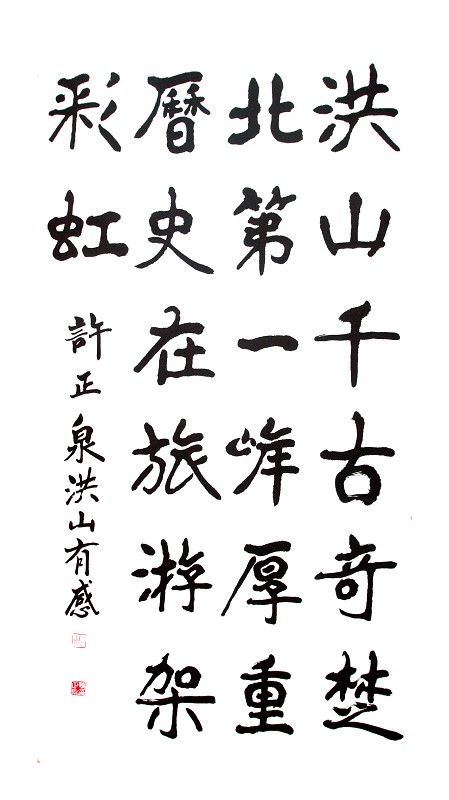 洪山千古奇楚
北第一峰厚重
曆史在旅游架
彩虹
許正泉洪山有感